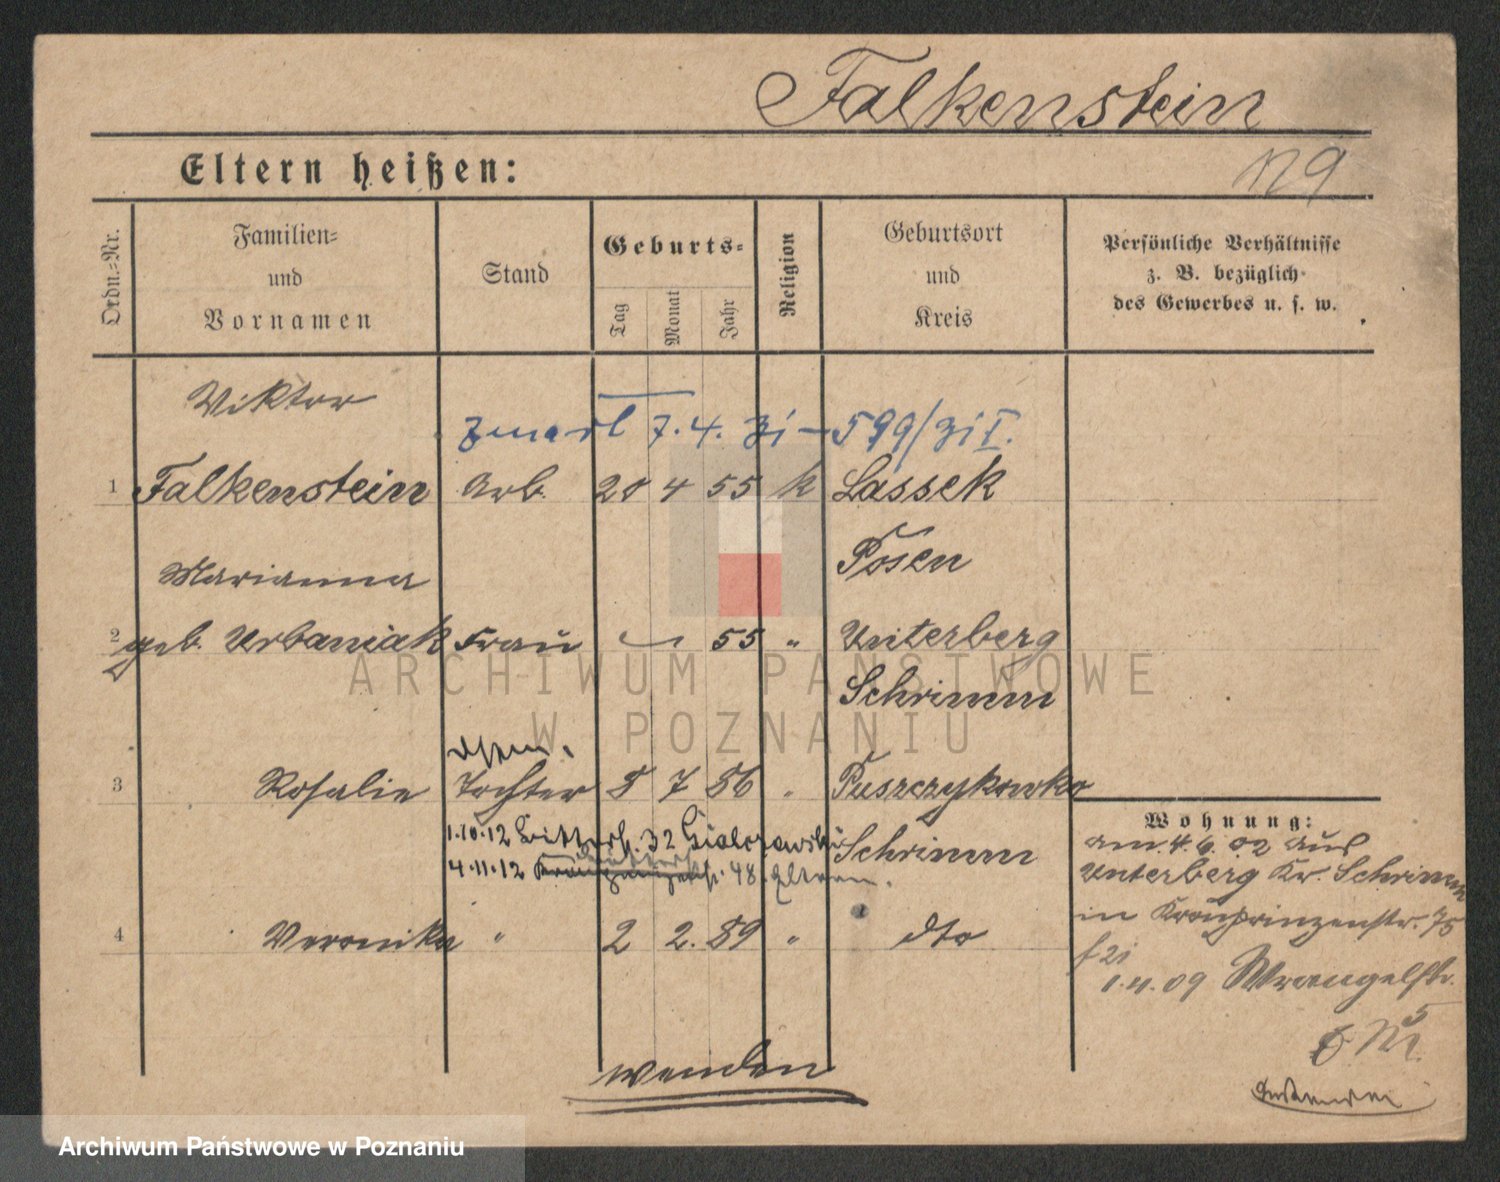 Falkenstein
Eltern heißen:
129
Ordn.=Nr.
Familien=
und
Vornamen
Stand
Geburts=
Tag
Monat
Jahr
Religion
Geburtsort
und
Kreis
Persönliche Verhältnisse
z. B. bezüglich
des Gewerbes u. s. w.
Viktor
zmarł 7.4.31 – 599/31 I.
1 Falkenstein Arb. 20 4 55 k Lassek
Posen
Marianna
2 geb. Urbaniak Frau 55 " Unterberg
Schrimm
3 Rosalie Tochter 8 7 86 " Puszczykowko
Schrimm
1.10.12 32
4.11.12 48. Eltern.
4 Veronika " 2 2. 89 " dto
Wohnung:
am 4.6.02 aus
Unterberg Kr. Schrimm
in Kronprinzenstr. 75
1.4.09 Wrangelstr.
5
wenden
ARCHIWUM PAŃSTWOWE
W POZNANIU
Archiwum Państwowe w Poznaniu